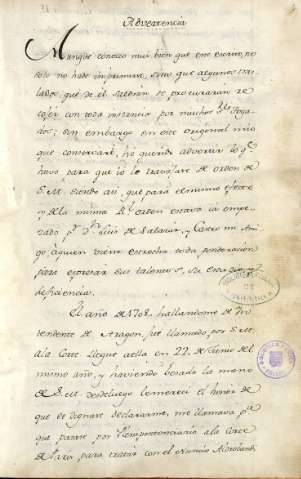 Advertencia
Aunque conozco mui bien que este escrito, no
solo no hade imprimirse, sino que algunos tras
lados, que de el saldràn se procuraràn re
cojer con toda instancia por muchos
dos; sin embargo en este original mio
que conservarè, he querido advertir lo q.
huvo para que io le travajase de orden de
S. M. siendo asi, que para el mismo efecto
y de la misma R.l orden estava ia empe
zado p.r D.n Luis de Salazar, y Castro mi Ami
go àquien viene estrecha toda ponderacion
para expresar sus talentos, su
deficiencia.
El año de 1708. hallandome de In
tendente de Aragon, fui llamado, por S. M.
à la Corte. Llegue aella en 22. de Junio del
mismo año, y haviendo besado la mano
de S. M. desdeluego le merecì el honor de
que se dignase declararme, me llamava p.a
que pasase por Plenipotenciario à la Corte
de para tratar con el Nuncio Aldobandi